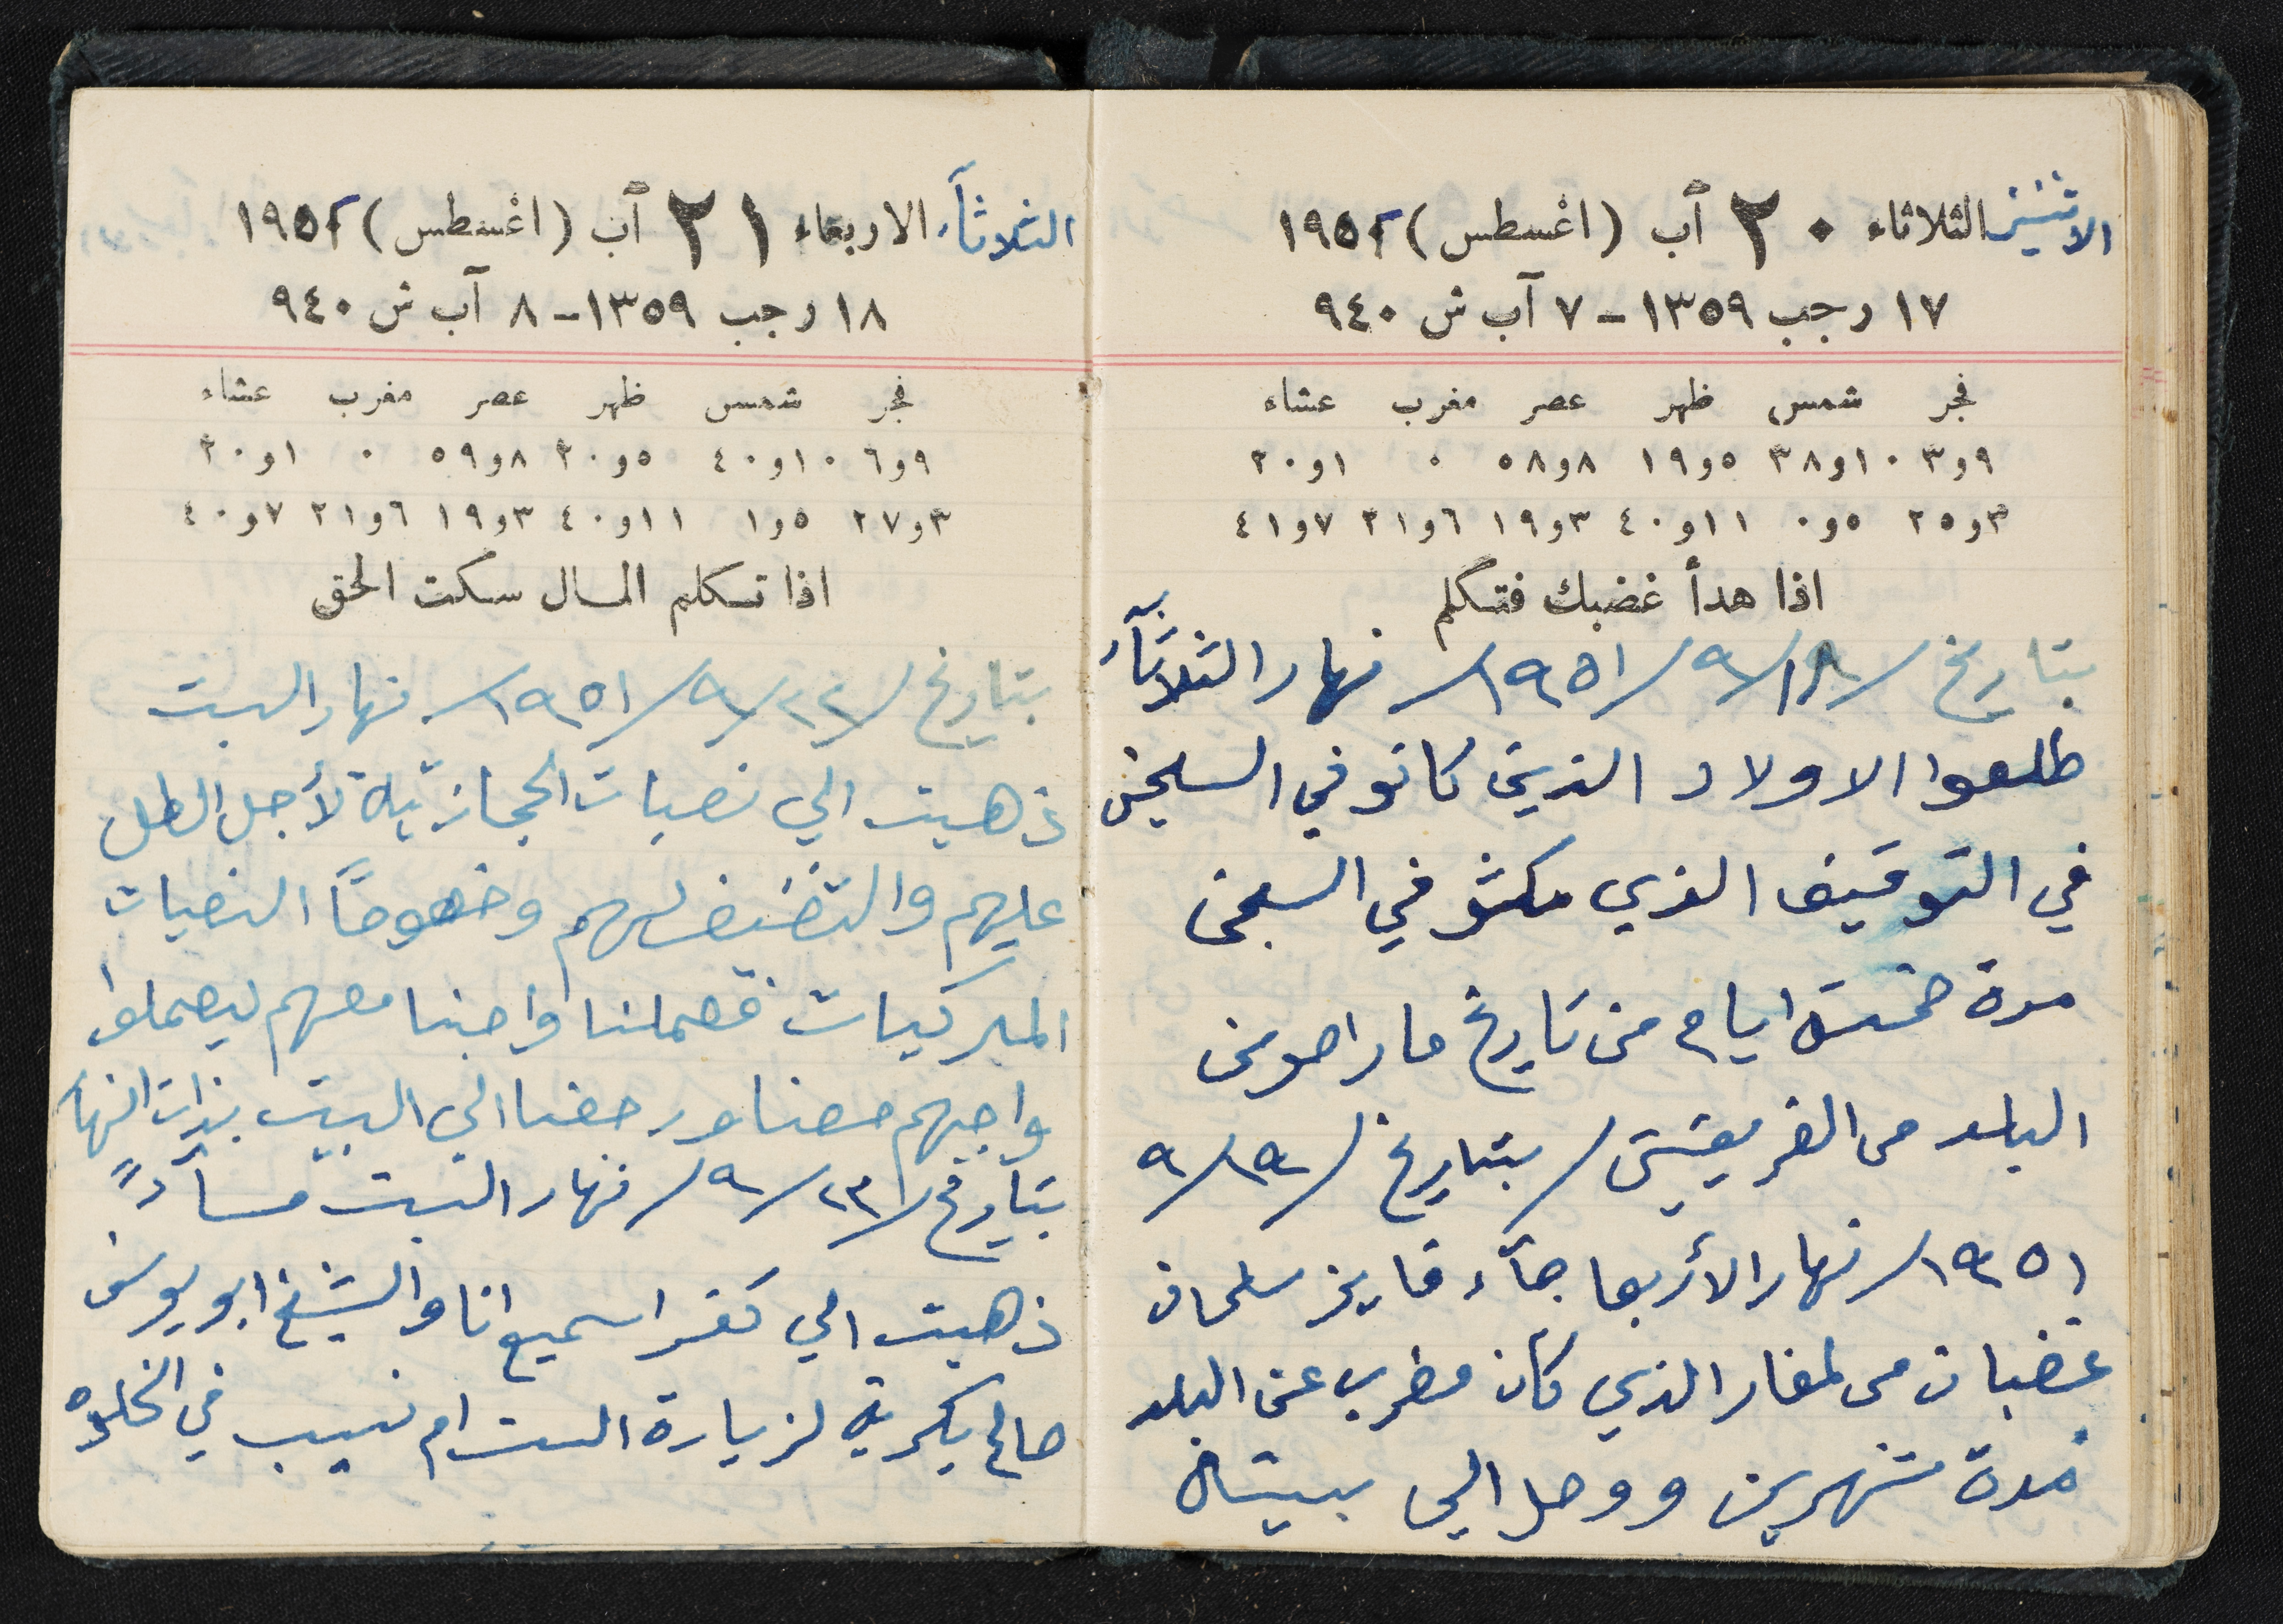 الاثنين الثلاثاء ٢٠ آب (اغسطس) ١٩٥٢
١٧ رجب ١٣٥٩ - ٧ آب ش ٩٤٠
فجر شمس ظهر عصر مغرب عشاء
٩و٣ ١٠و٣٨ ٥و١٩ ٨و٥٨ ٠ ١و٢٠
٣و٢٥ ٥و٠ ١١و٤٠ ٣و١٩ ٦و٢١ ٧و٤١
اذا هدأ غضبك فتكلم
بتاريخ /١٨/٩/١٩٥١/ نهار الثلاثآء
طلعوا الاولاد الذين كانو في السجن
في التوقيف الذي مكثو في السجن
مدة خمسة ايام من تاريخ ما راحو من
البلد من الفريقين / بتاريخ /١٩/٩
١٩٥١/ نهار الأربعا جآء فايز سلمان
غضبان من لمغار الذي كان مضرب عن البلد
مدة شهرين ووصل الي بيته
الثلاثآء الاربعاء ٢١ آب (اغسطس) ١٩٥٢
١٨ رجب ١٣٥٩ - ٨ آب ش ٩٤٠
فجر شمس ظهر عصر مغرب عشاء
٩و٦ ١٠و٤٠ ٥و٢٠ ٨و٥٩ ٠ ١و٢٠
٣و٢٧ ٥و١ ١١و٤٠ ٣و١٩ ٦و٢١ ٧و٤٠
اذا تكلم المال سكت الحق
بتاريخ /٢٢/٩/١٩٥١/ نهار السبت
ذهبت الي نصبات لأجل الطل
عليهم لهم وخصوصاً النصبات
فعملنا واجبنا معهم ليعملوا
واجبهم معنا ورجعنا الي البيت بذات النهار
بتاريخ /٢٣/٩/ نهار السبت مسآءً
ذهبت الي كفر اسميع انا والشيخ ابو يوسف
صالح بكرية لزيارة الست ام نسيب في الخلوه